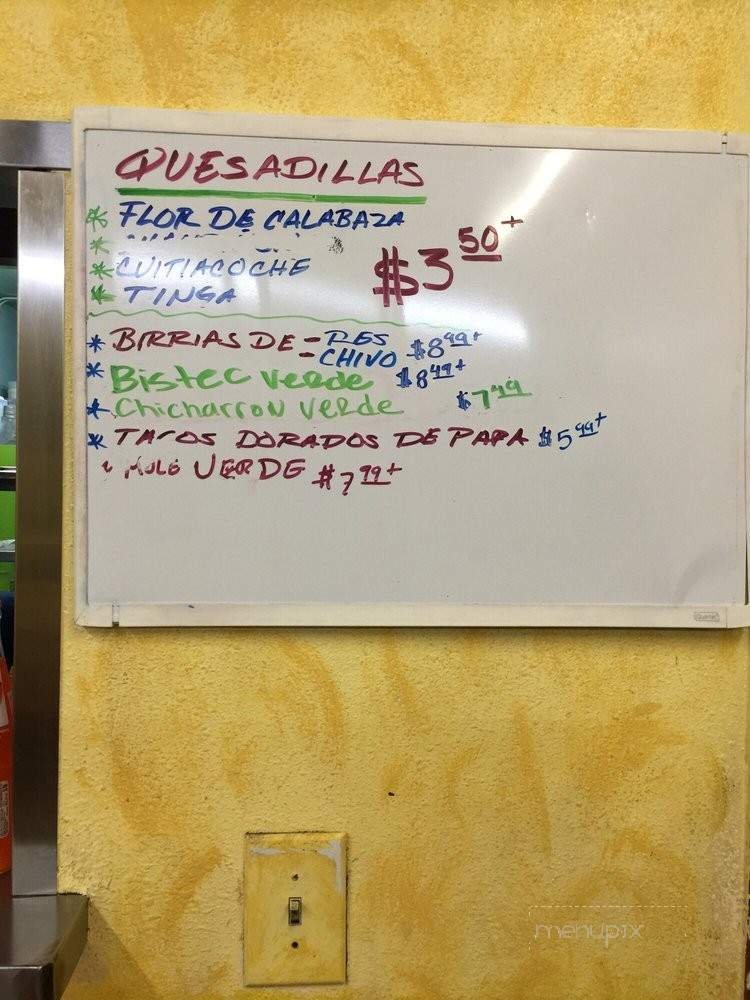 QUESADILLAS
* FLOR DE CALABAZA
*
* CUITLACOCHE
* TINGA
$3 50+
* BIRRIAS DE - RES
- CHIVO $8 99+
* Bistec verde $8 49+
* Chicharron verde $7 49
* TACOS DORADOS DE PAPA $5 99+
MOLE VERDE $7 99+
Quartet
menupix